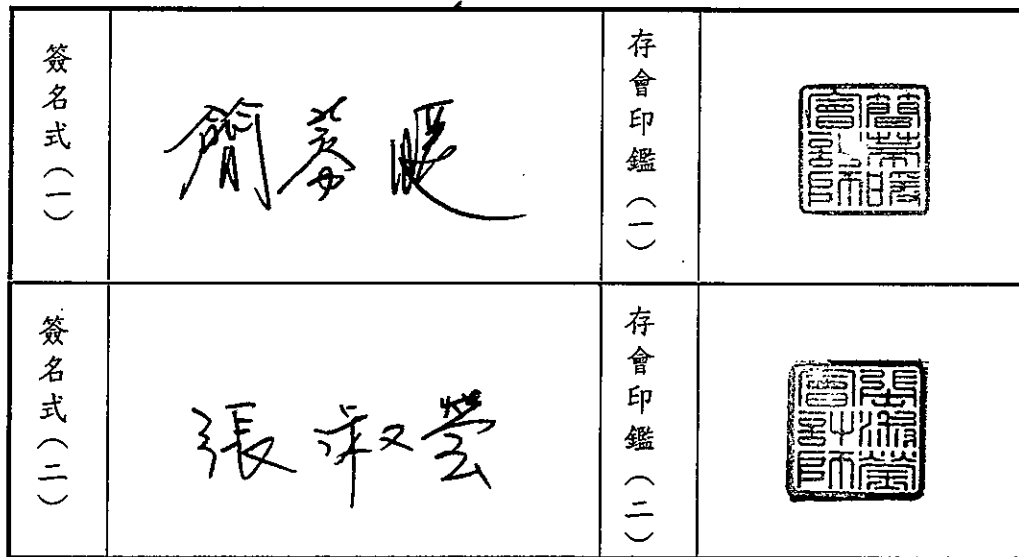 簽名式(一)
簡蒂暖
存會印鑑(一)
簡蒂暖會計師
簽名式(二)
張淑瑩
存會印鑑(二)
張淑瑩會計師